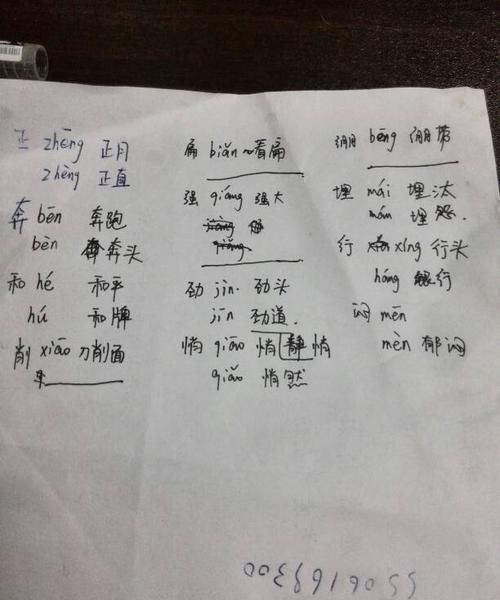 正 zhēng 正月
zhèng 正直
奔 bēn 奔跑
bèn 奔头
和 hé 和平
hú 和牌
削 xiāo 刀削面
扁 biǎn 看扁
强 qiáng 强大
劲 jìn 劲头
jìn 劲道.
悄 qiāo 悄静悄
qiǎo 悄然
绷 bēng 绷带
埋 mái 埋汰
mán 埋怨.
行 xíng 行头
háng 银行
闷 mēn
mèn 郁闷